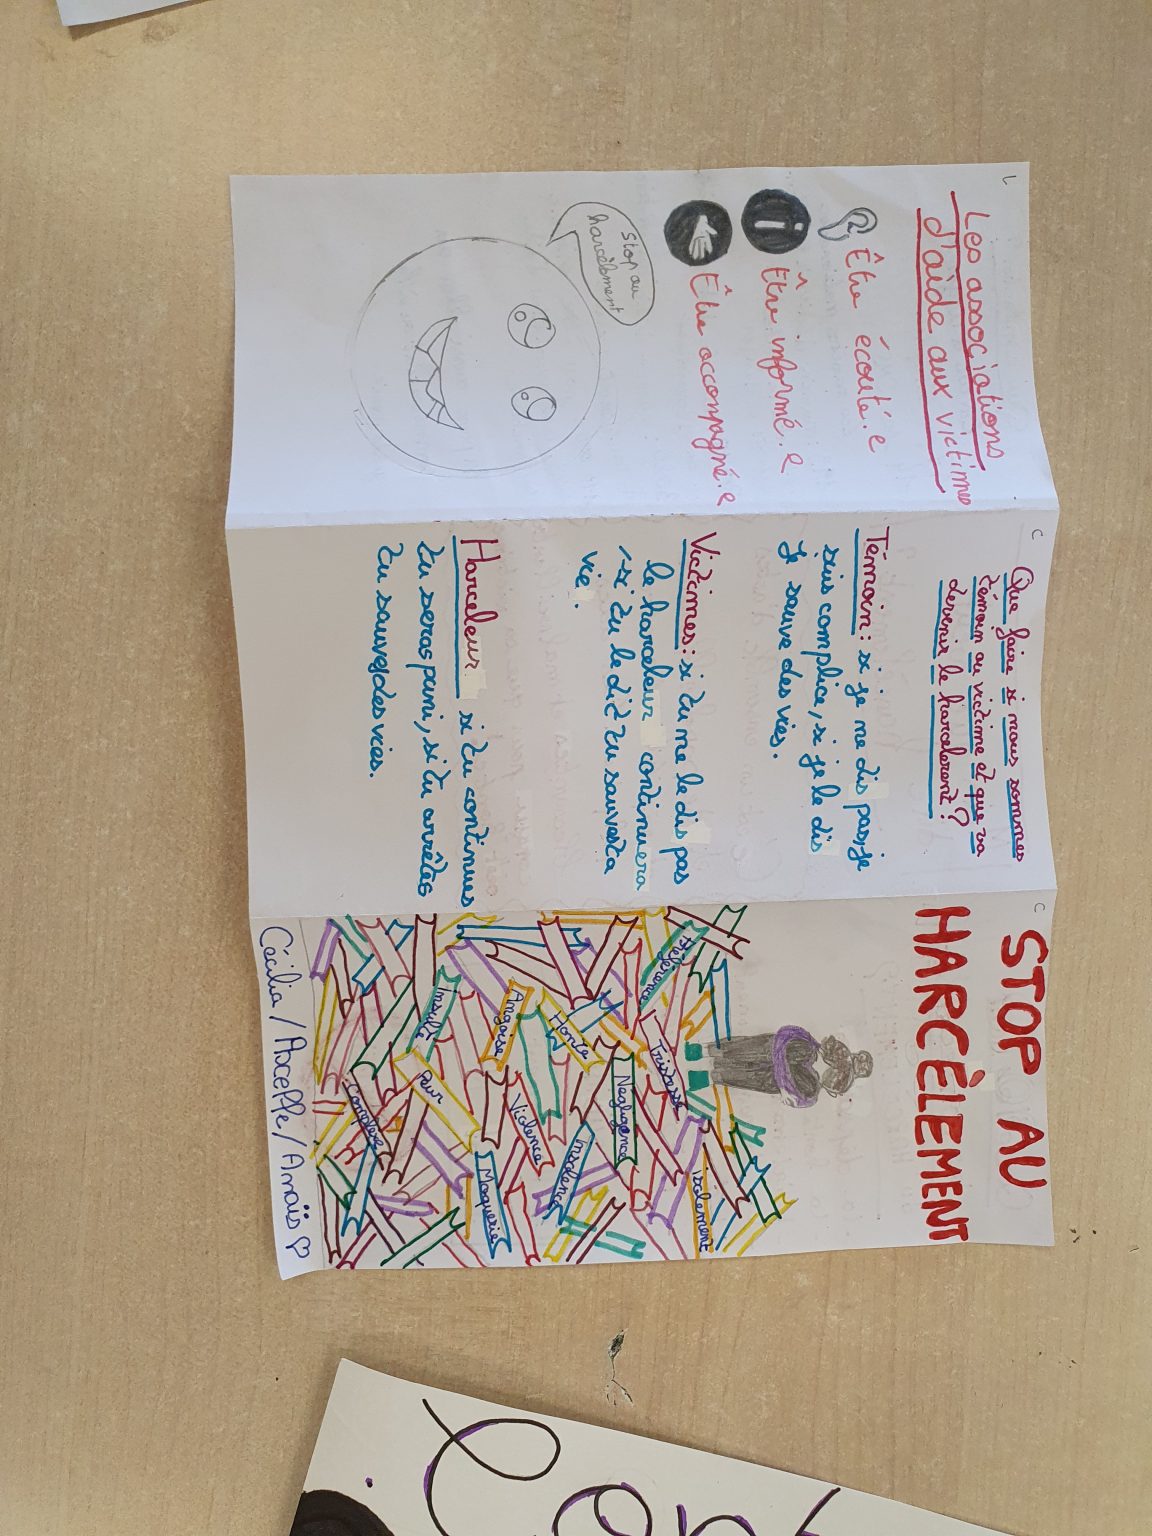 Les associations
d'aide aux victimes
Être écouté.e
Être informé.e
Être accompagné.e
Stop au
harcèlement
Que faire si nous sommes
témoin ou victime et que va
devenir le harcelerent?
Témoin: si je ne dis pas, je
suis complice, si je le dis
je sauve des vies.
Victimes: si tu ne le dis pas
le harceleur continuera
, si tu le dit tu sauvesta
vie.
Harceleur si tu continues
tu seras puni, si tu arrêtes
tu sauvesdes vies.
STOP AU
HARCÈLEMENT
Tristesse
isolement
Négligence
Honte
Angoisse
Insolence
Violence
Insulte
Peur
Moquerie
Complexe